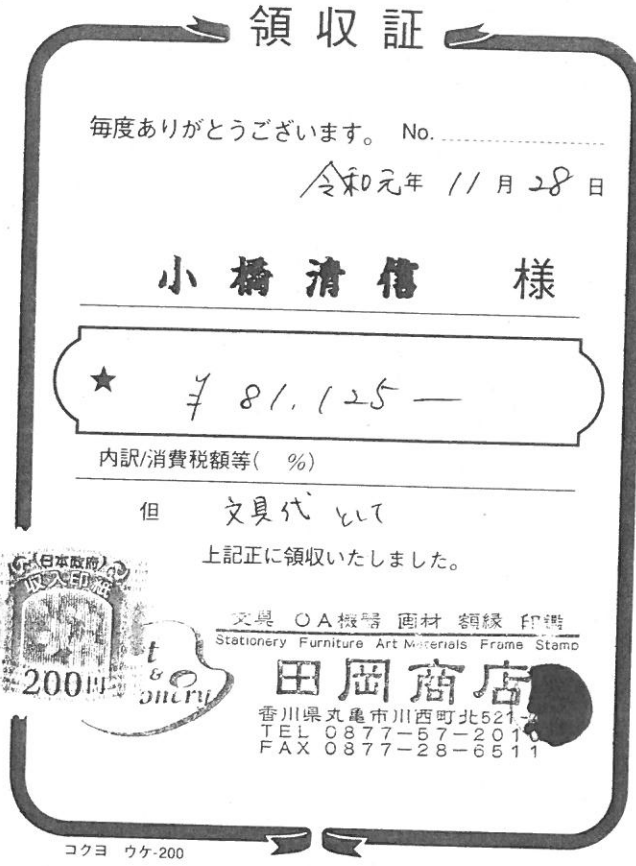 領収証
毎度ありがとうございます。 No.
令和元年 11月28日
小橋清信 様
★ ¥81,125―
内訳/消費税額等( %)
但 文具代として
上記正に領収いたしました。
日本政府
収入印紙
200円
文具 OA機器 画材 額縁 印鑑
Stationery Furniture Art Materials Frame Stamp
田岡商店
香川県丸亀市川西町北521-
TEL 0877-57-201
FAX 0877-28-6511
コクヨ ウケ-200